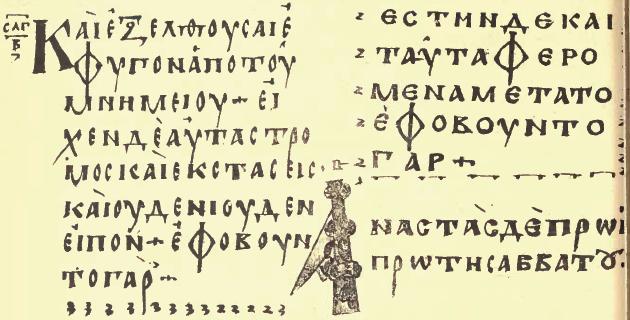 CΛΓ
Β
ΚΑΙ ΕΞΕΛΘΟΥCΑΙ Ε
ΦΥΓΟΝ ΑΠΟ ΤΟΥ
ΜΝΗΜΕΙΟΥ + ΕΙ
ΧΕΝ ΔΕ ΑΥΤΑC ΤΡΟ
ΜΟC ΚΑΙ ΕΚCΤΑCΕΙC·
ΚΑΙ ΟΥΔΕΝΙ ΟΥΔΕΝ
ΕΙΠΟΝ + ΕΦΟΒΟΥΝ
ΤΟ ΓΑΡ +
ΕCΤΗΝ ΔΕ ΚΑΙ
ΤΑΥΤΑ ΦΕΡΟ
ΜΕΝΑ ΜΕΤΑ ΤΟ
ΕΦΟΒΟΥΝΤΟ
ΓΑΡ +
ΑΝΑCΤΑC ΔΕ ΠΡΩΙ
ΠΡΩΤΗ CΑΒΒΑΤȢ·